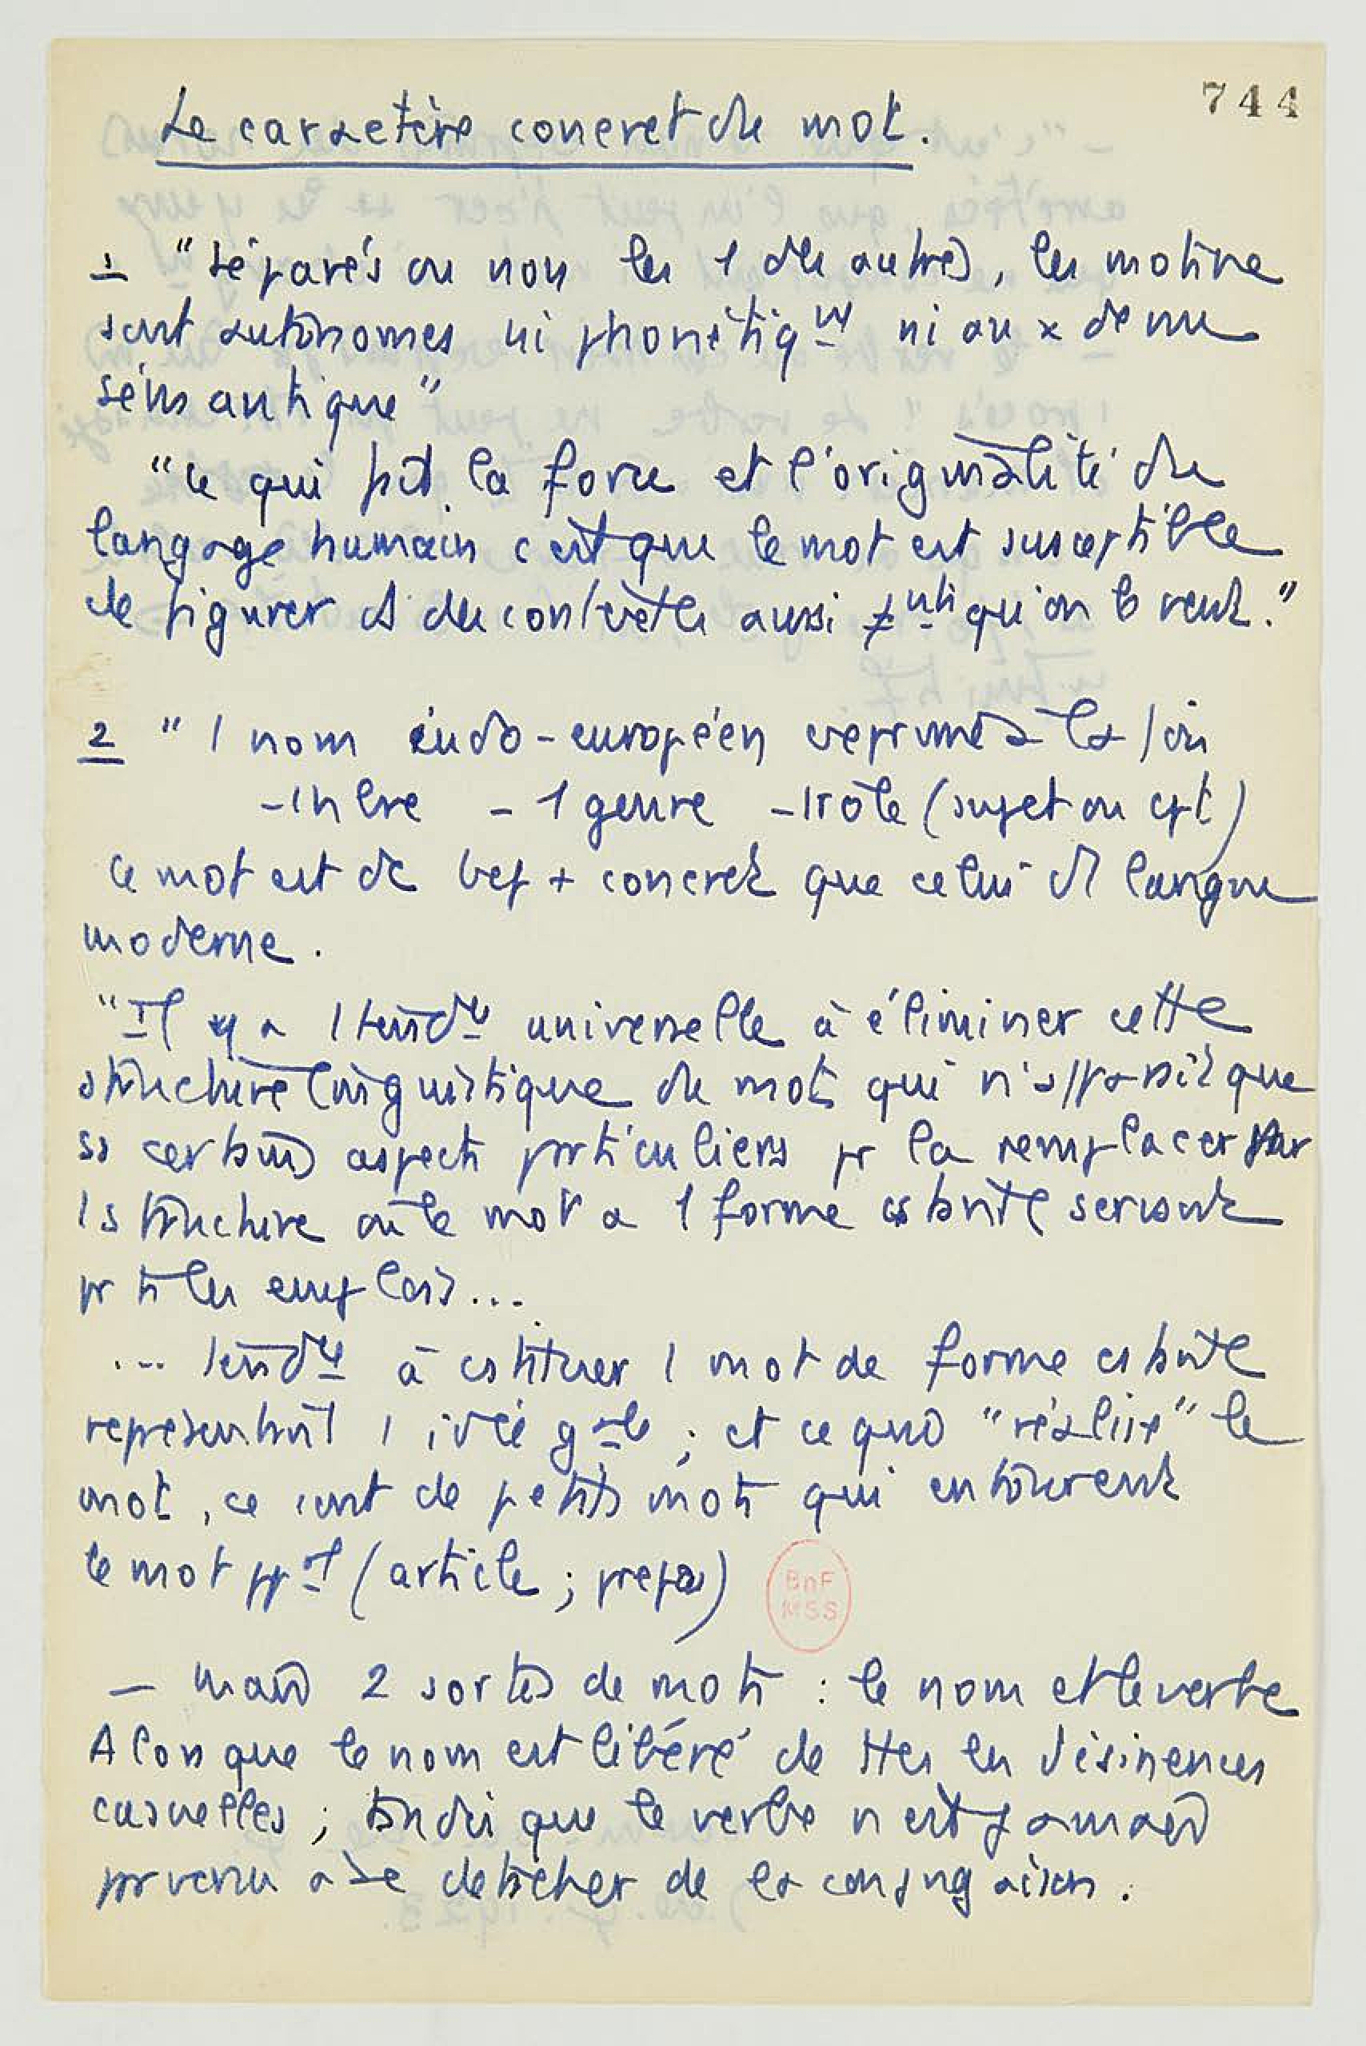 744
Le caractère concret du mot.
1 "séparés ou non les 1 des autres, les mots ne
sont autonomes ni phonétiqnt ni au x de vue
sémantique"
"ce qui fait la force et l'originalité du
langage humain c'est que le mot est susceptible
de figurer ds des contextes aussi ≠nts qu'on le veut."
2 "1 nom indo-européen exprimait à la fois
- 1 nbre - 1 genre - 1 rôle (sujet ou cpt)
ce mot est dc bcp + concret que celui ds langue
moderne.
"Il y a 1 tendce universelle à éliminer cette
structure linguistique du mot qui n'apparaît que
ss certains aspects particuliers pr la remplacer par
1 structure où le mot a 1 forme cstante servant
pr ts les emplois...
... tendce à cstituer 1 mot de forme cstante
représentant 1 idée gale ; et ce qui "réalise" le
mot, ce sont de petits mots qui entourent
le mot ppal (article ; prepos)
BnF
MSS
— mais 2 sortes de mots : le nom et le verbe
Alors que le nom est libéré de ttes les désinences
casuelles ; tandis que le verbe n'est jamais
parvenu à se détacher de la conjugaison.